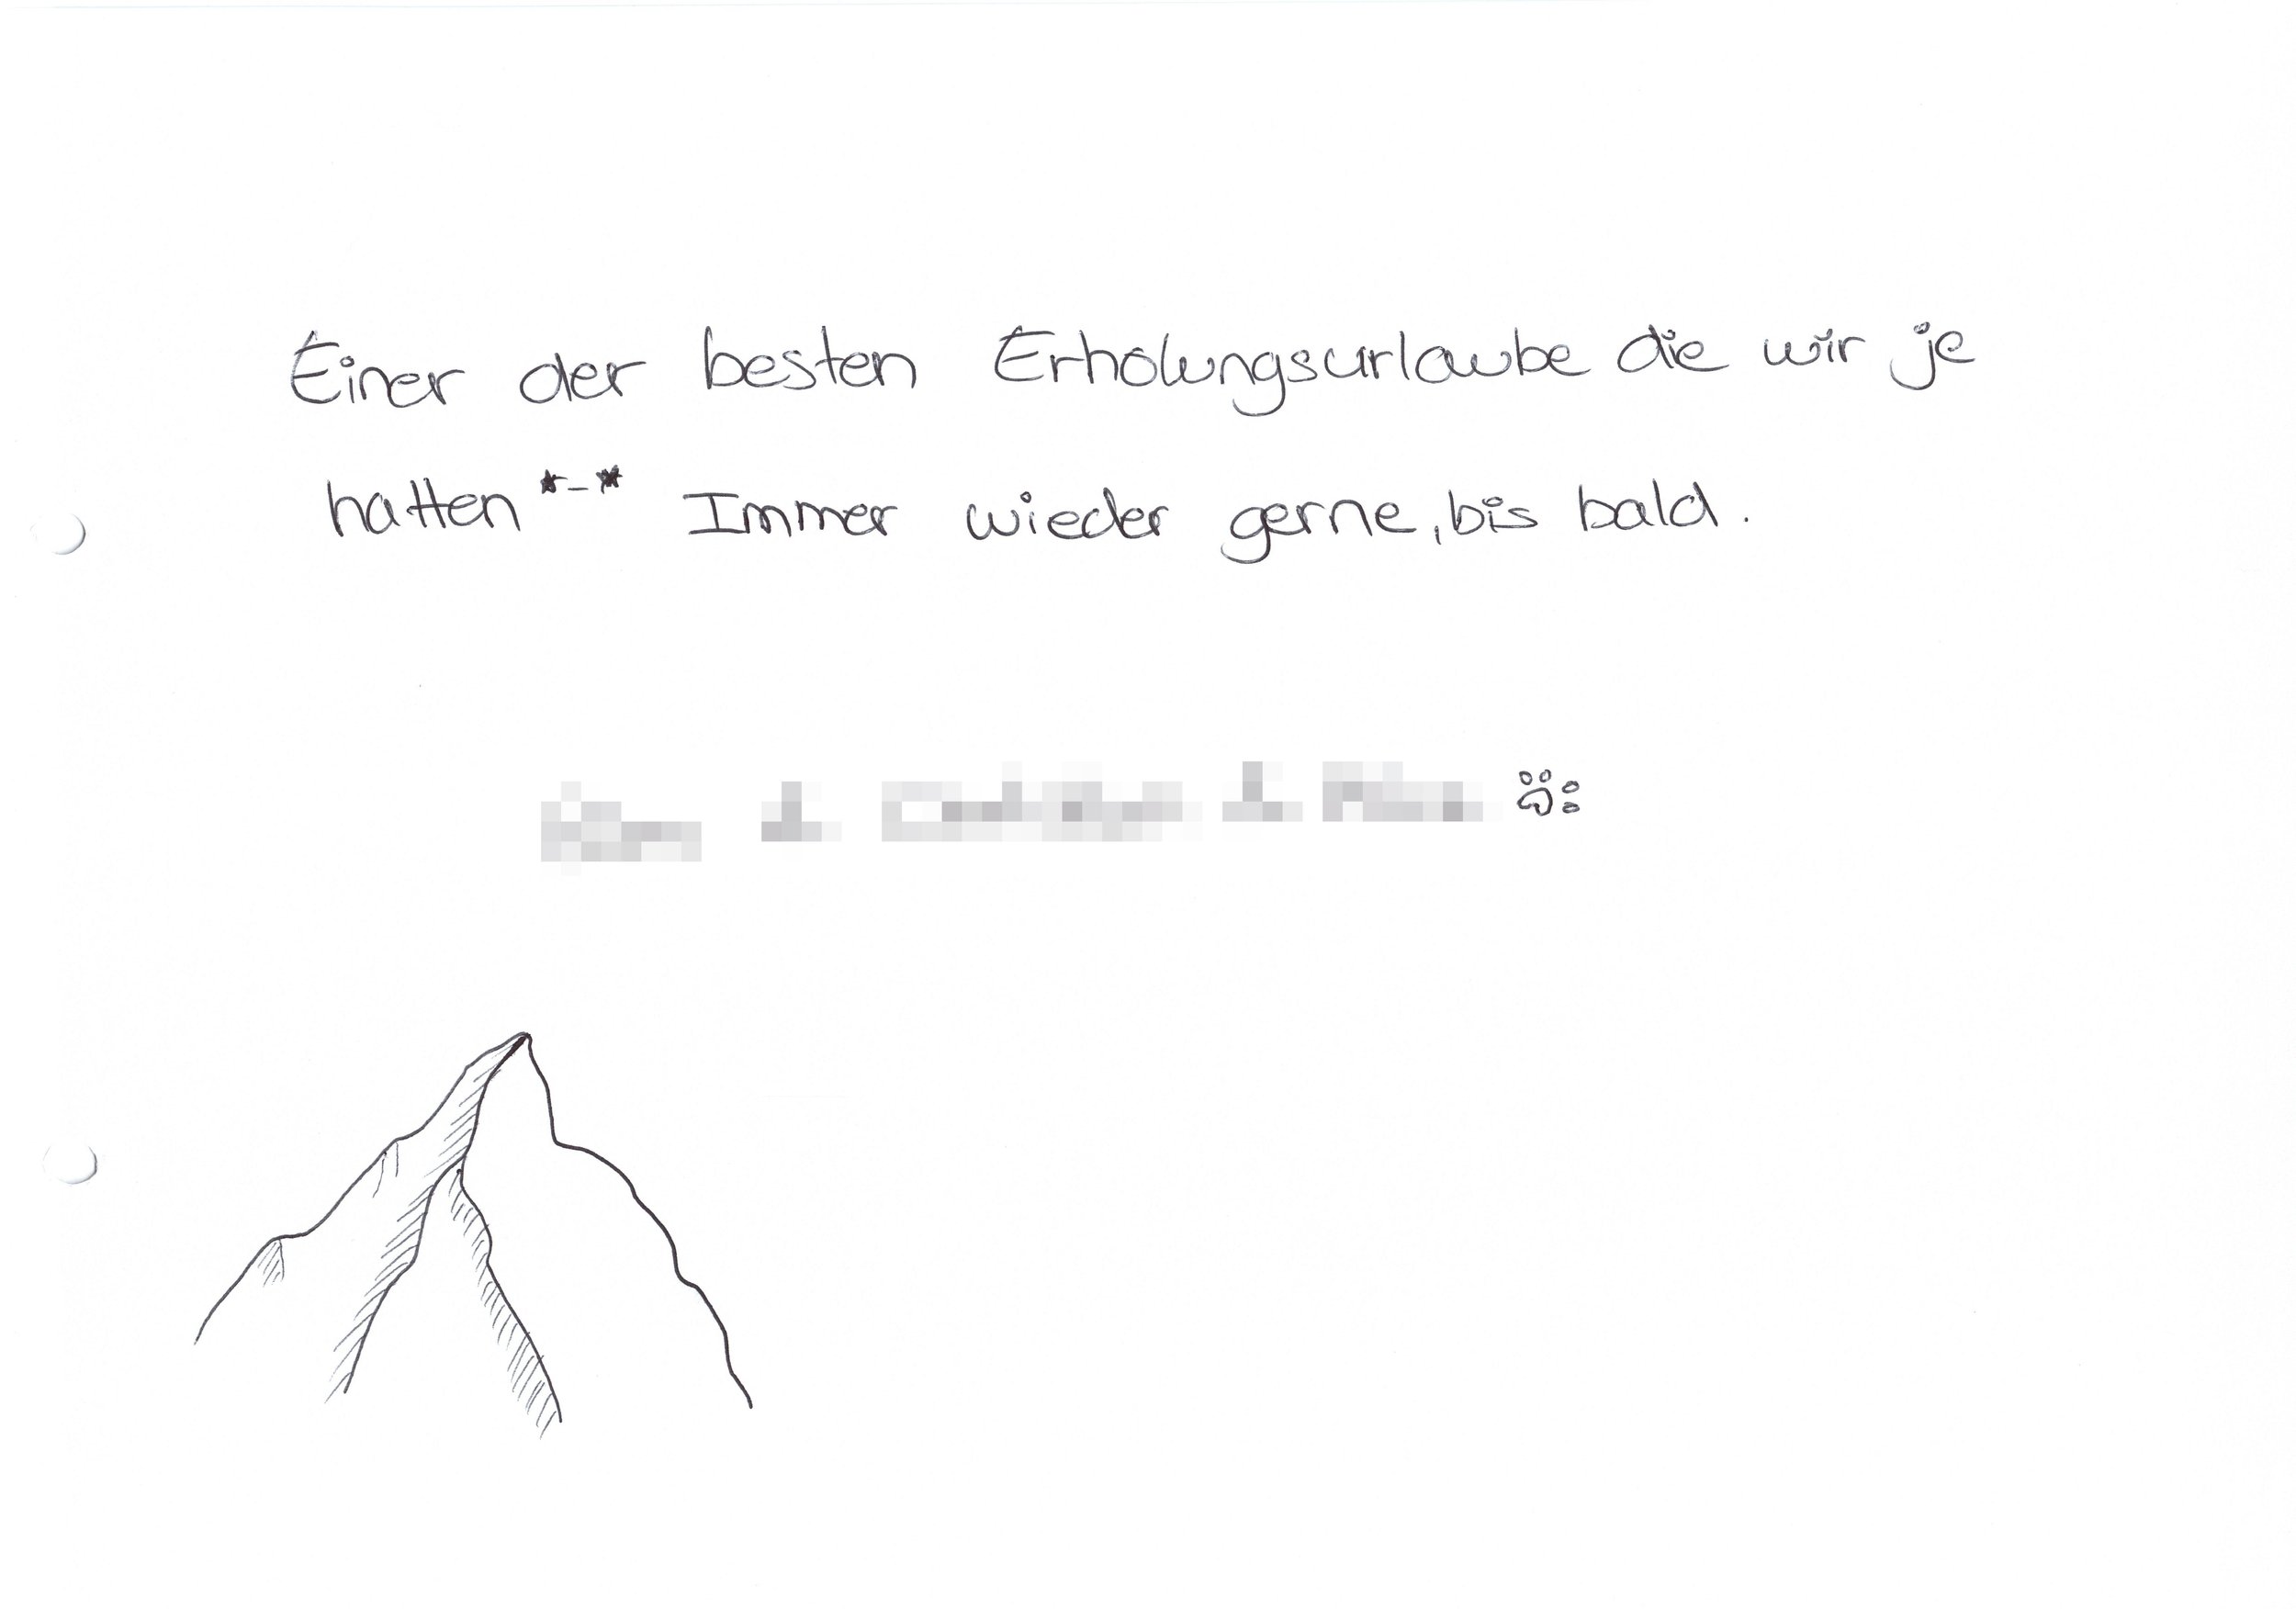 Einer der besten Erholungsurlaube die wir je
hatten *-* Immer wieder gerne, bis bald.